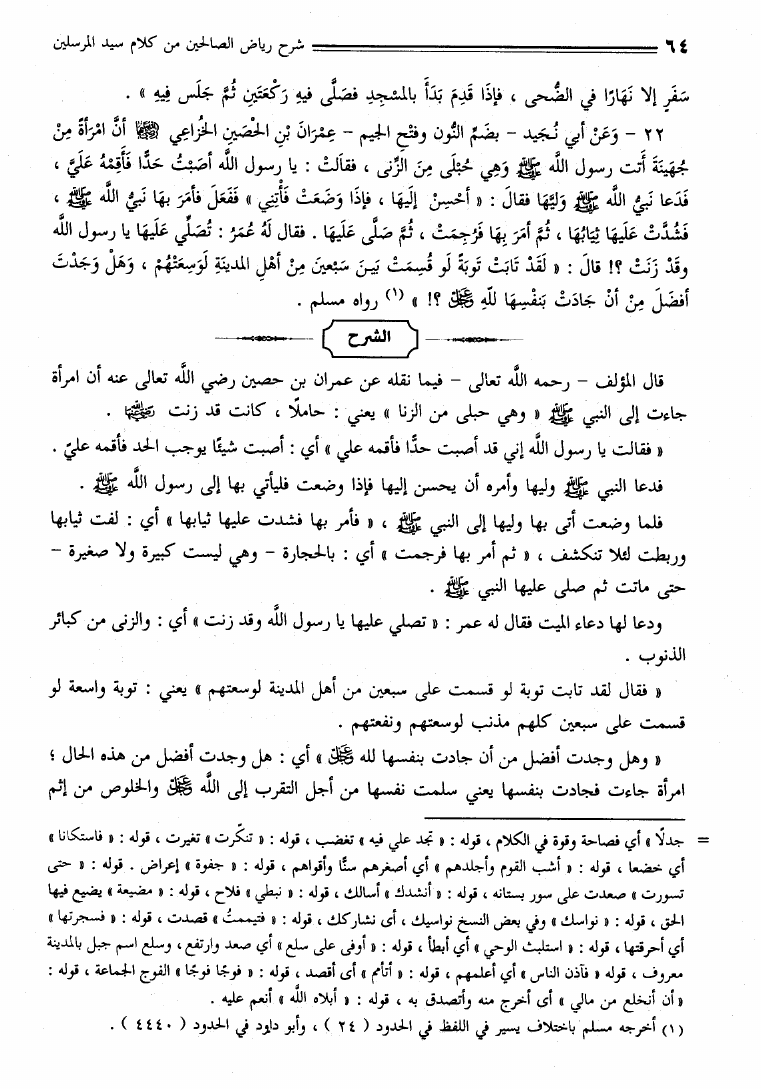 ٦٤ شرح رياض الصالحين من كلام سيد المرسلين
سَفَرٍ إلا نَهَارًا في الضُّحى ، فإذَا قَدِمَ بَدَأَ بالمسْجِدِ فصَلَّى فيهِ رَكْعَتَينِ ثُمَّ جَلَس فِيهِ » .
٢٢ - وَعَنْ أبي نُـجَيد - بضَمِّ النُّونِ وفتْحِ الجيم - عِمْرَانَ بْنِ الحُصَينِ الخُزَاعِي رضي الله عنهما أنَّ امْرَأةً مِنْ
جُهَينَةَ أتت رسول اللَّه ﷺ وَهِي حُبْلَى مِنَ الزِّنى ، فقالَتْ : يا رسول اللَّه أصَبْتُ حَدًّا فَأَقِمْهُ عَلَيَّ ،
فَدَعا نَبيُّ اللَّه ﷺ وَلِيَّهَا فقالَ : « أحْسِنْ إلَيهَا ، فإذَا وَضَعَتْ فَأْتِنِي » فَفَعَلَ فأمَرَ بهَا نَبيُّ اللَّه ﷺ ،
فَشُدَّتْ عَلَيهَا ثِيَابُهَا ، ثُمَّ أمَرَ بِهَا فَرُجِمَتْ ، ثُمَّ صَلَّى عَلَيهَا . فقال لَهُ عُمَرُ : تُصَلِّي عَلَيهَا يا رسول اللَّه
وقَدْ زَنَتْ ؟! قالَ : « لَقَدْ تَابَتْ تَوبَةً لَو قُسِمَتْ بَيـنَ سَبْعينَ مِنْ أهْلِ المدينَةِ لَوَسِعَتْهُمْ ، وَهَلْ وَجَدْتَ
أفضَلَ مِنْ أنْ جَادَتْ بِنَفْسِهَا للَّهِ ﷿ ؟! » (١) رواه مسلم .
الشرح
قال المؤلف - رحمه اللَّه تعالى - فيما نقله عن عمران بن حصين رضي اللَّه تعالى عنه أن امرأة
جاءت إلى النبي ﷺ « وهي حبلى من الزنا » يعني : حاملًا ، كانت قد زنت رضي الله عنها .
« فقالت يا رسول اللَّه إني قد أصبت حدًّا فأقمه علي » أي : أصبت شيئًا يوجب الحد فأقمه عليّ .
فدعا النبي ﷺ وليها وأمره أن يحسن إليها فإذا وضعت فليأتي بها إلى رسول اللَّه ﷺ .
فلما وضعت أتى بها وليها إلى النبي ﷺ ، « فأمر بها فشدت عليها ثيابها » أي : لفت ثيابها
وربطت لئلا تنكشف ، « ثم أمر بها فرجمت » أي : بالحجارة - وهي ليست كبيرة ولا صغيرة -
حتى ماتت ثم صلى عليها النبي ﷺ .
ودعا لها دعاء الميت فقال له عمر : « تصلي عليها يا رسول اللَّه وقد زنت » أي : والزنى من كبائر
الذنوب .
« فقال لقد تابت توبة لو قسمت على سبعين من أهل المدينة لوسعتهم » يعني : توبة واسعة لو
قسمت على سبعين كلهم مذنب لوسعتهم ونفعتهم .
« وهل وجدت أفضل من أن جادت بنفسها لله ﷿ » أي : هل وجدت أفضل من هذه الحال ؛
امرأة جاءت فجادت بنفسها يعني سلمت نفسها من أجل التقرب إلى اللَّه ﷿ والخلوص من إثم
= جدلًا » أي فصاحة وقوة في الكلام ، قوله : « تجد علي فيه » تغضب ، قوله : « تنكّرت » تغيرت ، قوله : « فاستكانا »
أي خضعا ، قوله : « أشب القوم وأجلدهم » أي أصغرهم سنًّا وأقواهم ، قوله : « جفوة » إعراض . قوله : « حتى
تسورت » صعدت على سور بستانه ، قوله : « أنشدك » أسالك ، قوله : « نبطي » فلاح ، قوله : « مضيعة » يضيع فيها
الحق ، قوله : « نواسك » وفي بعض النسخ نواسيك ، أى نشاركك ، قوله : « فتيممتُ » قصدت ، قوله : « فسجرتها »
أي أحرقتها ، قوله : « استلبث الوحي » أي أبطأ ، قوله : « أوفى على سلع » أي صعد وارتفع ، وسلع اسم جبل بالمدينة
معروف ، قوله « فآذن الناس » أي أعلمهم ، قوله : « أتأمم » أى أقصد ، قوله : « فوجًا فوجًا » الفوج الجماعة ، قوله :
« أن أنخلع من مالي » أى أخرج منه وأتصدق به ، قوله : « أبلاه اللَّه » أنعم عليه .
(١) أخرجه مسلم باختلاف يسير في اللفظ في الحدود ( ٢٤ ) ، وأبو داود في الحدود ( ٤٤٤٠ ) .